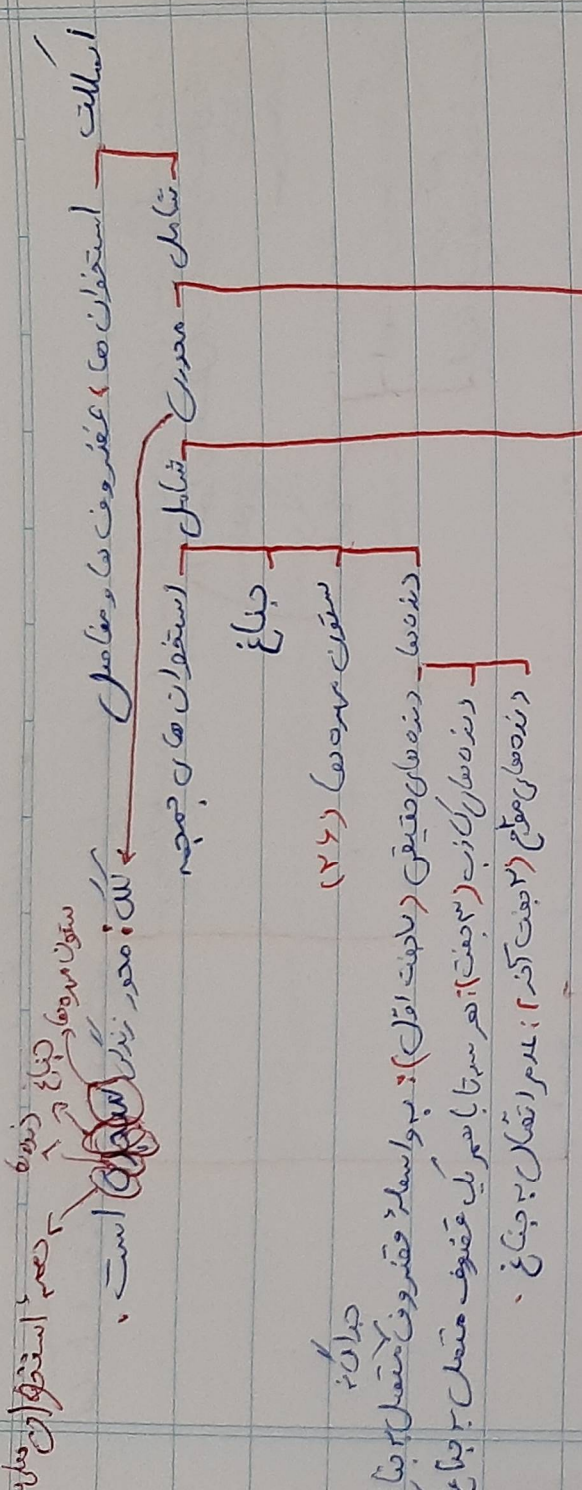 اسکلت
استخوان ها، غضروف ها و مفاصل
شامل محوری شامل استخوان های جمجمه
جناغ
ستون مهره ها (۲۶)
دنده ها
دنده های حقیقی (۷ جفت اول): به واسطهٔ غضروف متصل به
جداگانه
دنده های کاذب (۳ جفت): هر سه تا با هم یک غضروف متصل به جناغ
دنده های مواج (۲ جفت آخر): عدم اتصال به جناغ.
محور زندگی است.
ستون مهره ها
جناغ
دنده ها
جمجمه
استخوان